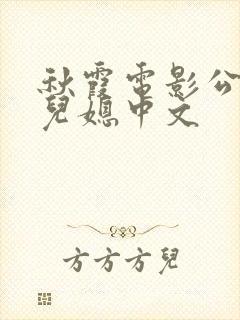 秋霞电影公
兒媳中文
方方方兒